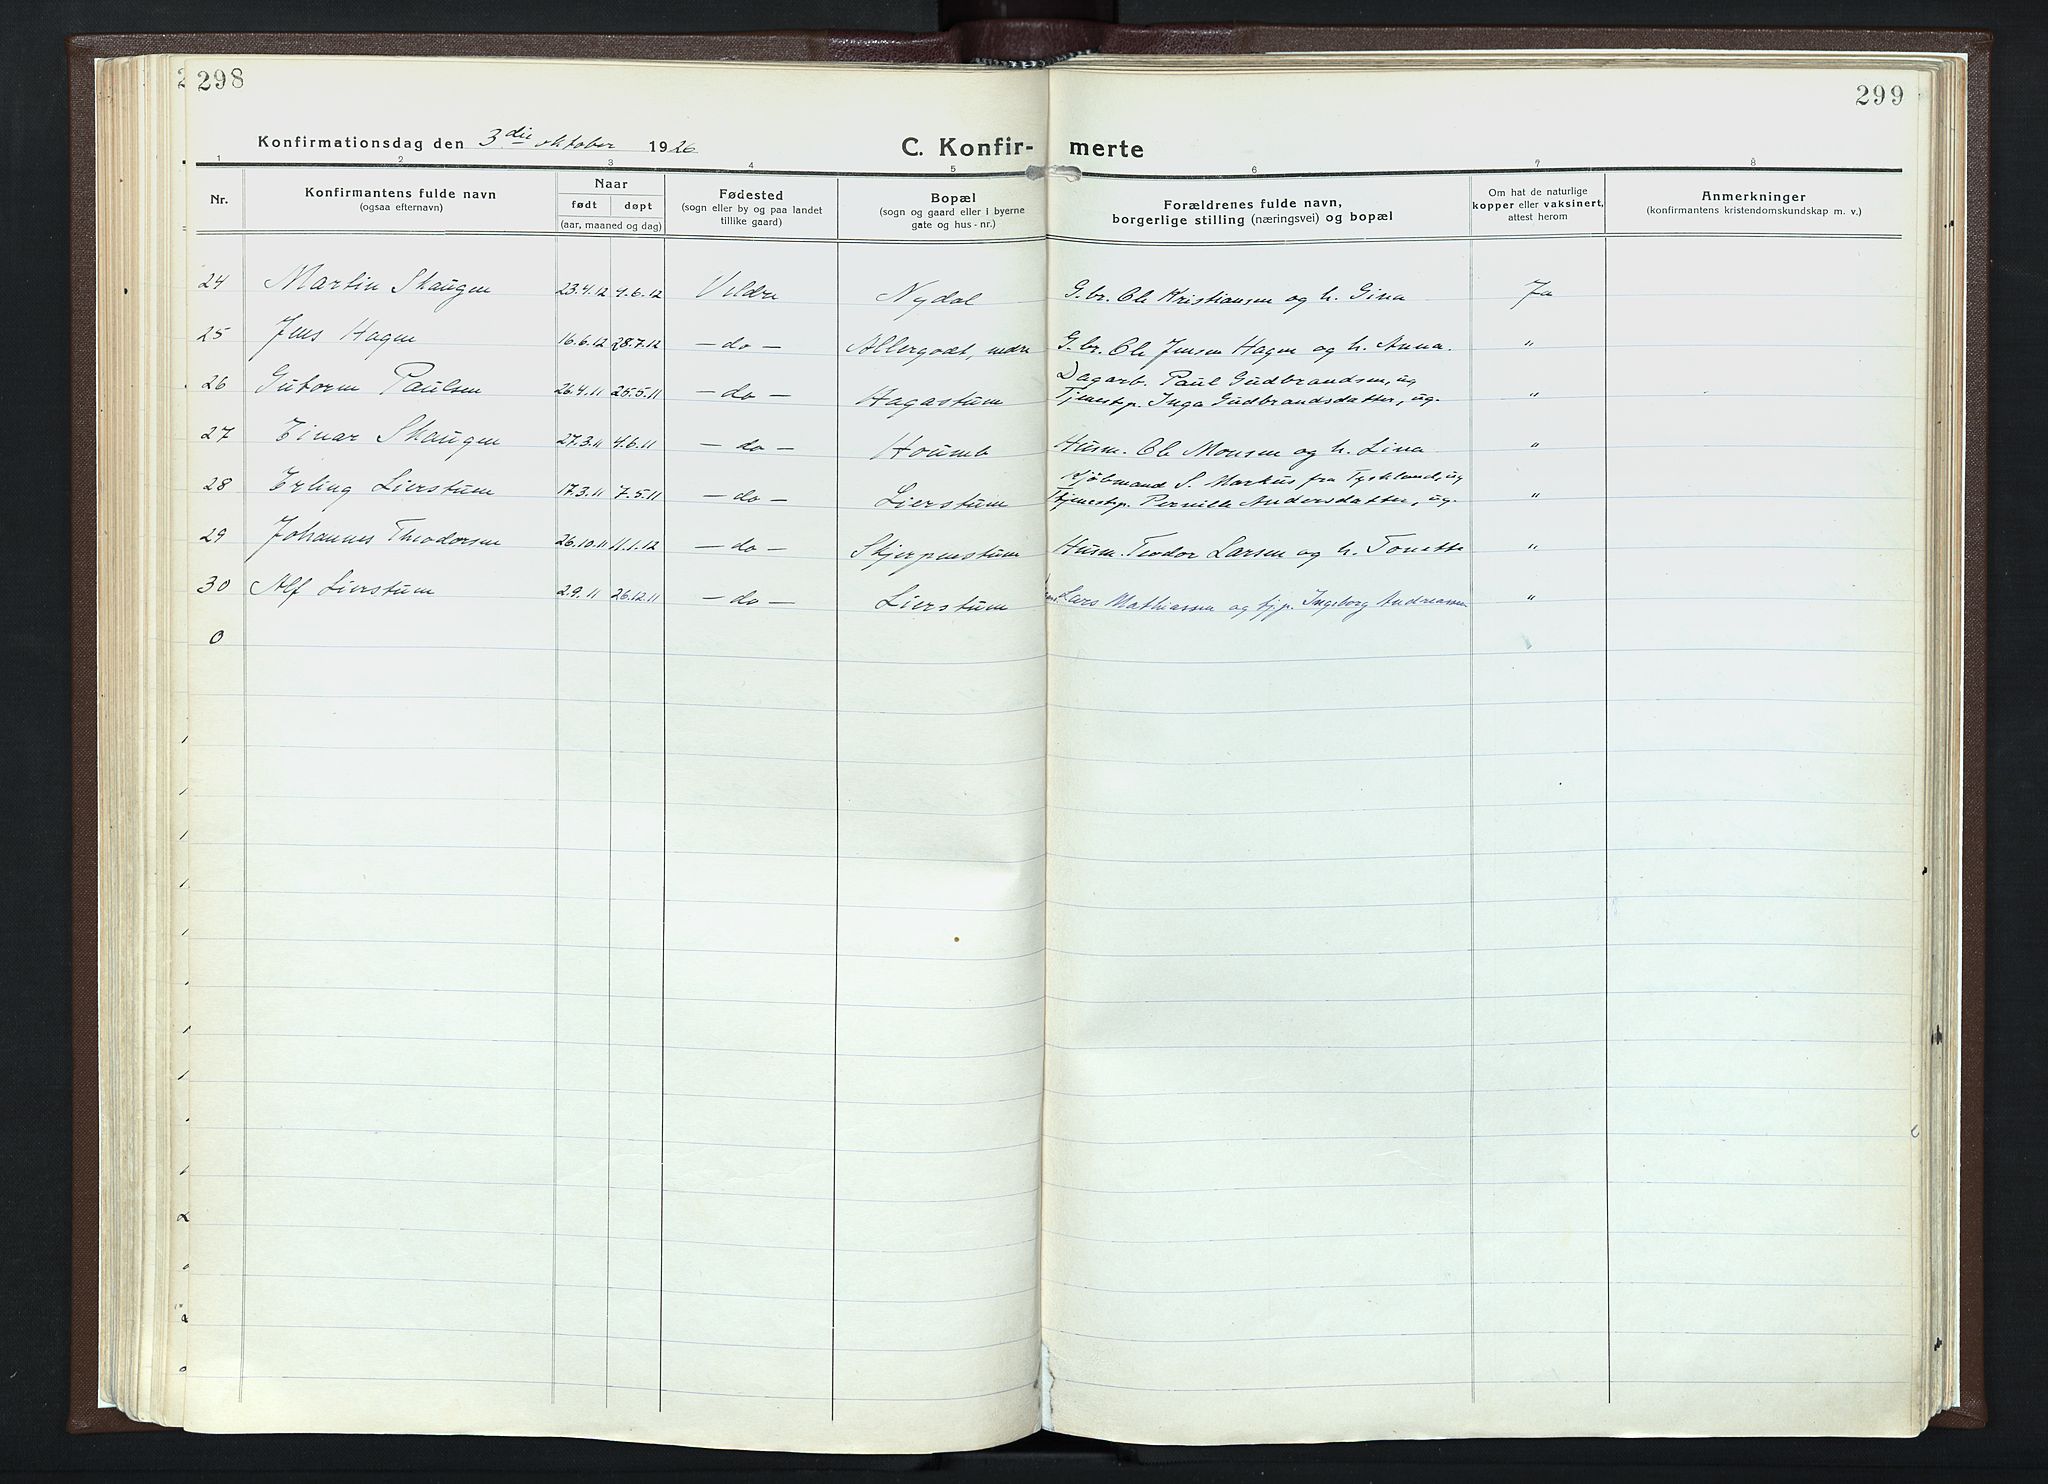 298
299
Konfirmationsdag den 3die oktober 1926
C. Konfir- merte
1 2 3 4 5 6 7 8
Nr.
Konfirmantens fulde navn
(ogsaa efternavn)
Naar
født døpt
(aar, maaned og dag)
Fødested
(sogn eller by og paa landet
tillike gaard)
Bopæl
(sogn og gaard eller i byerne
gate og hus-nr.)
Forældrenes fulde navn,
borgerlige stilling (næringsvei) og bopæl
Om hat de naturlige
kopper eller vaksinert,
attest herom
Anmerkninger
(konfirmantens kristendomskundskap m. v.)
24 Martin Skaugen 23.4.12 4.6.12 Veldre Nydal G.br. Ole Kristiansen og h. Gina Ja
25 Jens Hagen 16.6.12 28.7.12 — do — Allergodt, nedre G.br. Ole Jensen Hagen og h. Anna. "
26 Gutorm Paulsen 26.4.11 25.5.11 — do — Hagastuen Dagarb. Paul Gudbrandsen, ug
Tjenestep. Inga Gudbrandsdatter, ug. "
27 Einar Skaugen 27.3.11 4.6.11 — do — Houmb Husm. Ole Monsen og h. Lina "
28 Erling Lierstuen 17.3.11 7.5.11 — do — Lierstuen Kjøbmand S. Markus fra Tyskland, ug
Tjenestep. Pernille Andersdatter, ug. "
29 Johannes Theodorsen 26.10.11 11.1.12 — do — Skjerpenstuen Husm. Teodor Larsen og h. Tonette "
30 Alf Lierstuen 2.9.11 26.12.11 — do — Lierstuen Lars Mathiassen og tj.p. Ingeborg Andreassen "
0